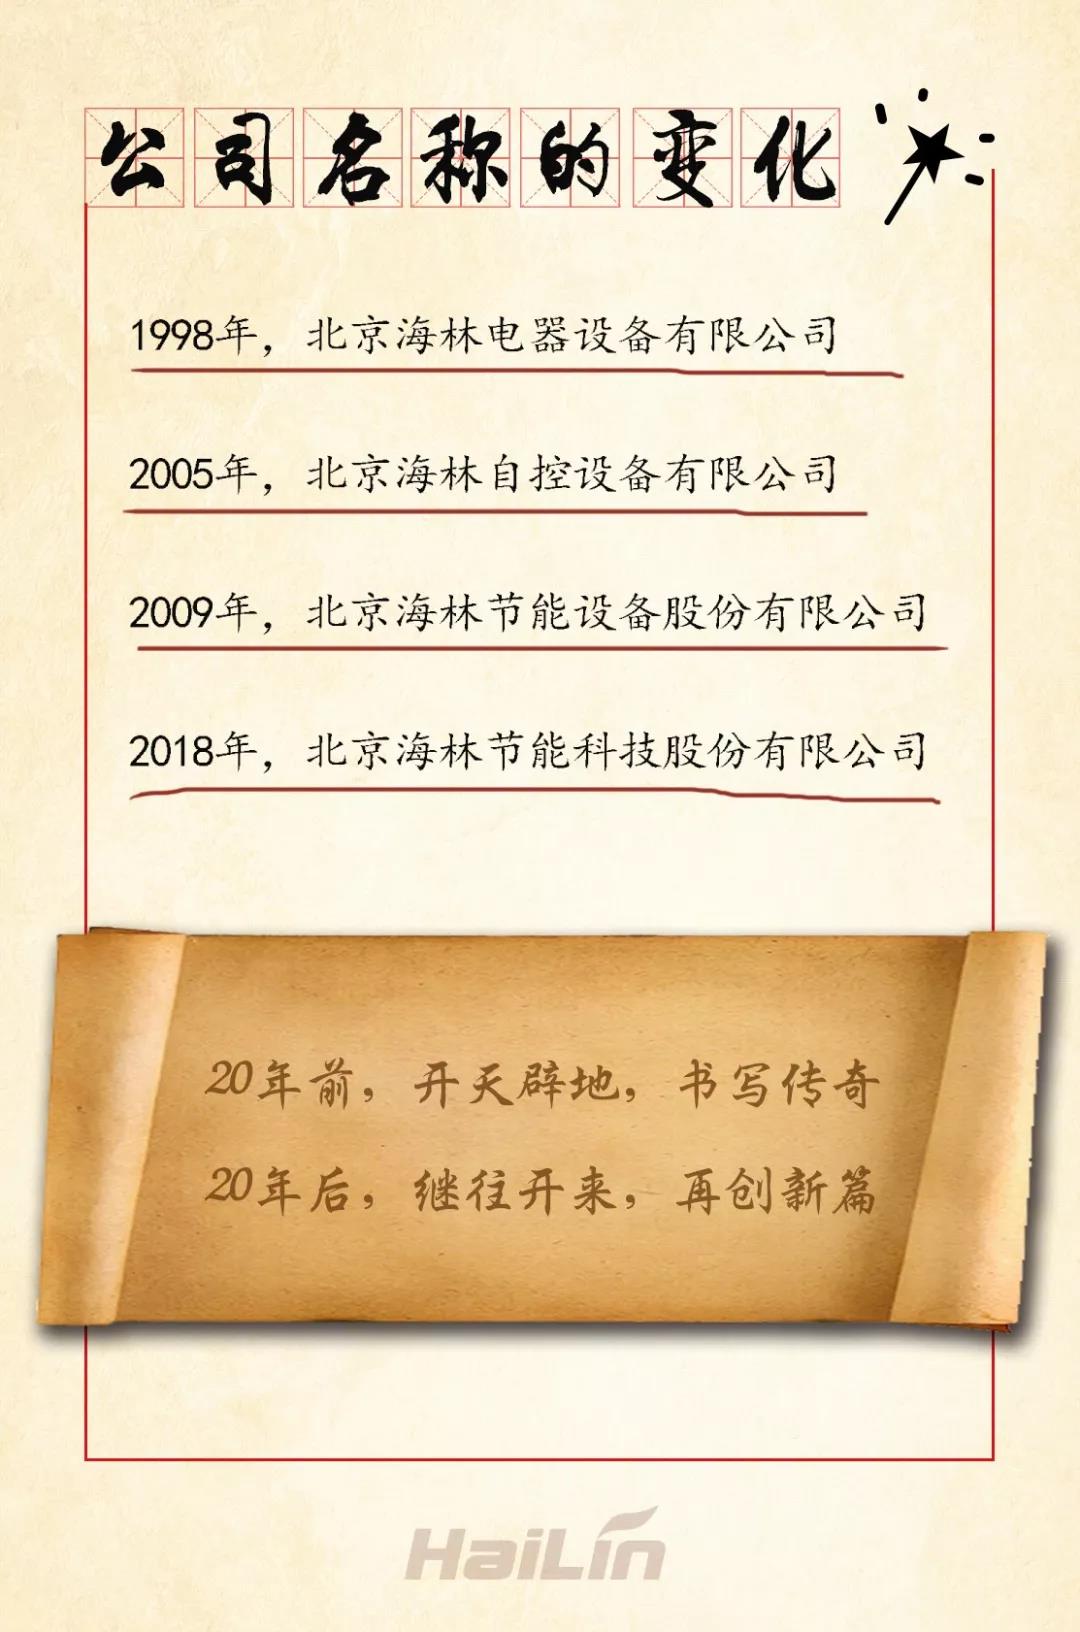 公司名称的变化
1998年，北京海林电器设备有限公司
2005年，北京海林自控设备有限公司
2009年，北京海林节能设备股份有限公司
2018年，北京海林节能科技股份有限公司
20年前，开天辟地，书写传奇
20年后，继往开来，再创新篇
HaiLin